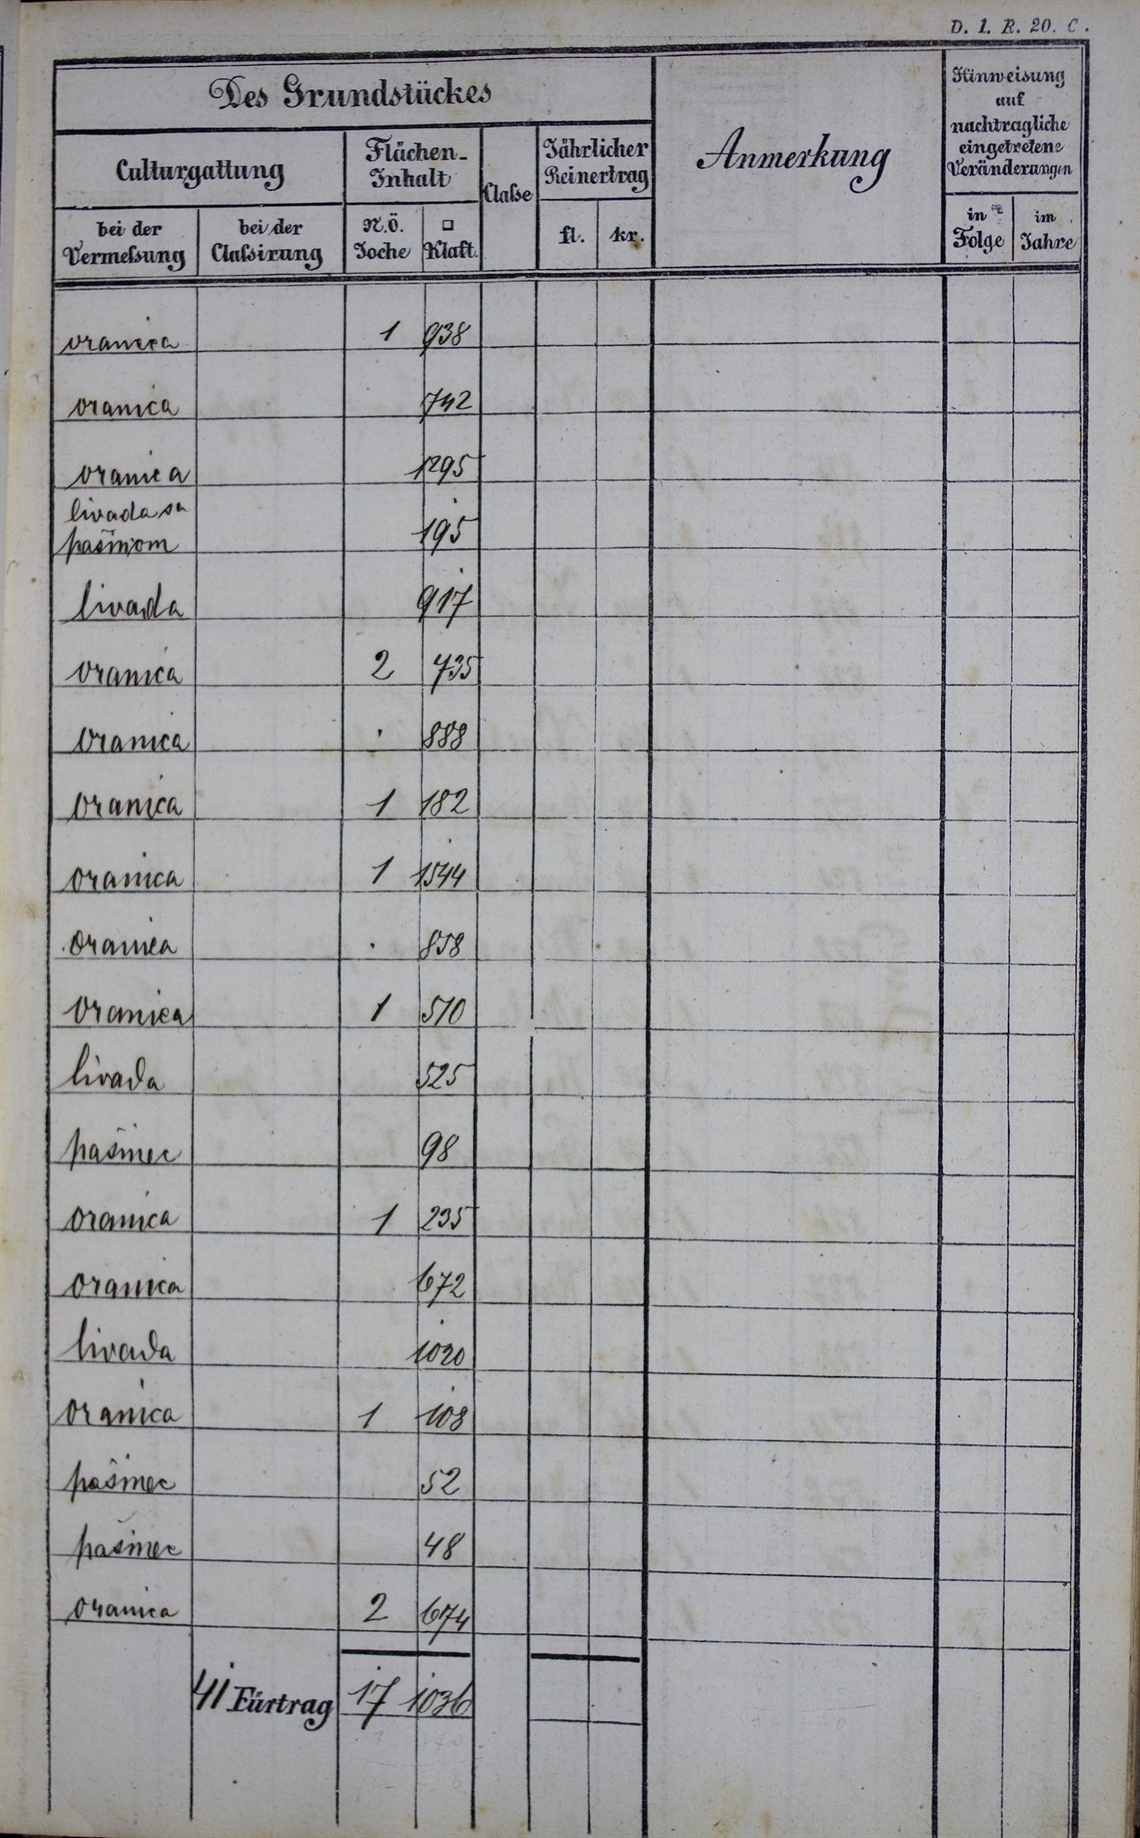 D. 1. R. 20. C.
Des Grundstückes
Anmerkung
Hinweisung
auf
nachtragliche
eingetretene
Veränderungen
Culturgattung
Flächen-
Inhalt
Classe
Jährlicher
Reinertrag
bei der
Vermessung
bei der
Classirung
N.Ö.
Joche
□
Klaft.
fl.
kr.
in
Folge
im
Jahre
oranica 1 938
oranica 742
oranica 1295
livada sa
pašnjom 195
livada 917
oranica 2 735
oranica . 888
oranica 1 182
oranica 1 1544
oranica . 858
oranica 1 510
livada 525
pašinec 98
oranica 1 235
oranica 672
livada 1020
oranica 1 108
pašinec 52
pašinec 48
oranica 2 674
41 Fürtrag 17 1036